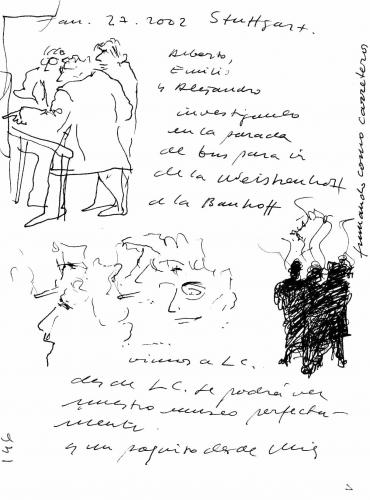 Jan. 27. 2002 Stuttgart.
Alberto,
Emilio
y Alejandro
investigando
en la parada
de bus para ir
de la Weissenhoff
a la Banhoff
fumando como carreteros
vimos a L.C.
desde L.C. se podrá ver
nuestro museo perfecta-
mente
y un poquito desde Mies
146